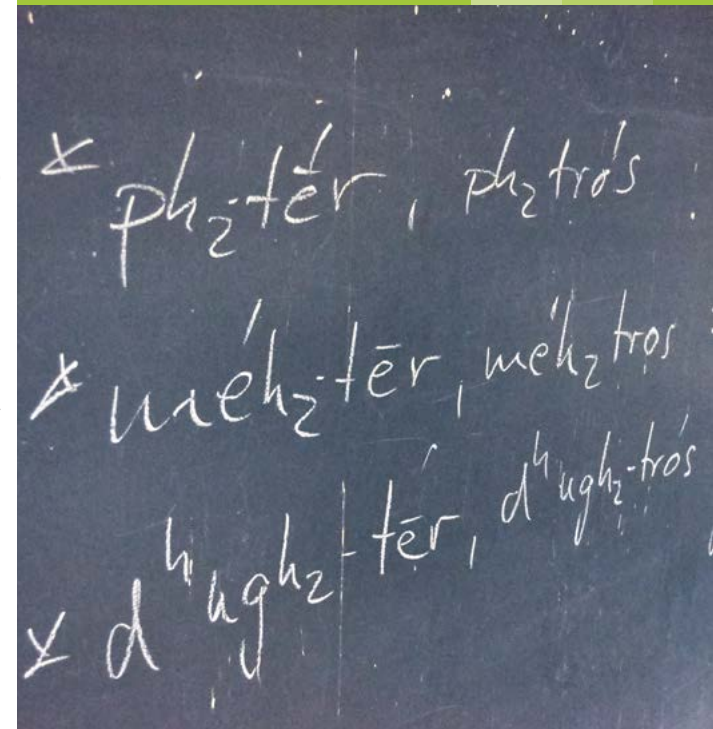 *ph₂-tḗr, ph₂trós
*méh₂-tēr, méh₂tros
*dʰugh₂-tḗr, dʰugh₂-trós